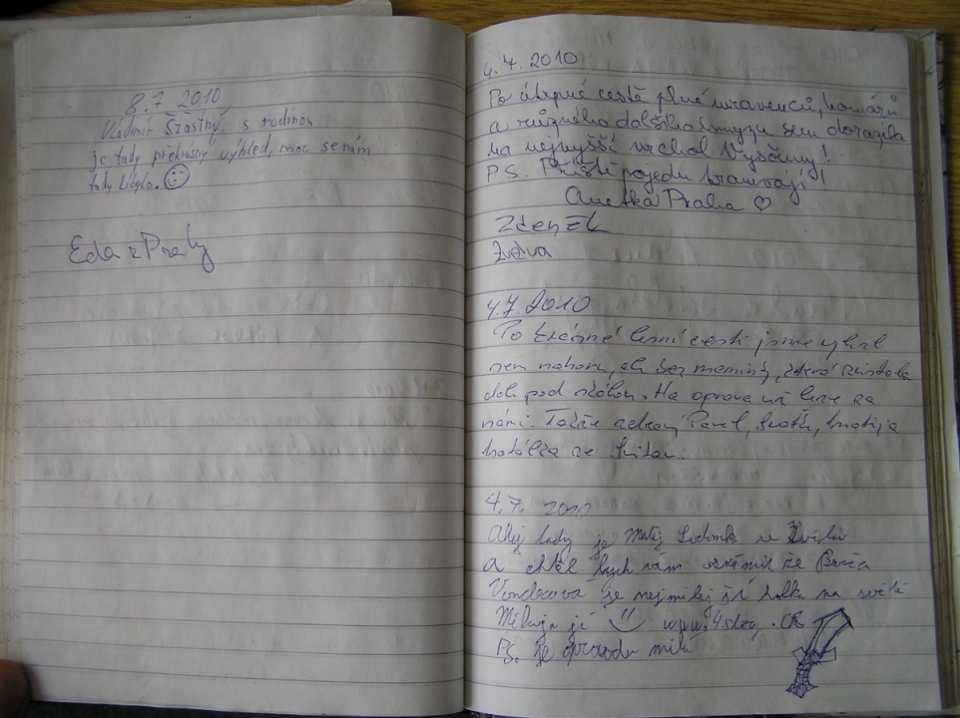 8.7 2010
Vladimír Šťastný, s rodinou
je tady překrásný výhled, moc se nám
tady líbilo.
Eda z Prahy
4.7.2010
Po útrpné cestě plné mravenců, komárů
a různého dalšího hmyzu sem dorazila
na nejvyšší vrchol Vysočiny!
P.S. Příště pojedu tramvají!
Anetka Praha ♡
Zdeněk
4.7.2010
Po krásné lesní cestě jsme
nahoru, ale bez maminky, která zůstala
dole pod skálou. Ha oprava už leze za
námi. Takže zdraví Pavel, Matěj a
ze
4.7. 2010
Ahoj tady je Matěj
a chtěl bych vám oznámit že
Vondrcová je nejmilejší holka na světě
Miluju jí
PS. je opravdu milá